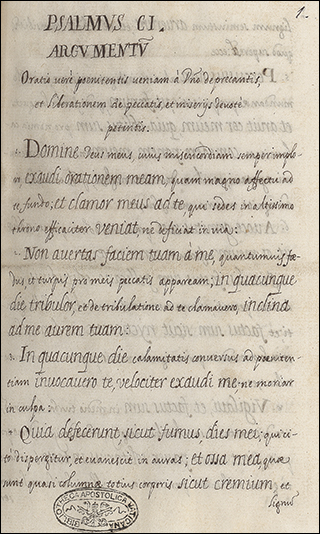 1.
PSALMUS CI.
ARGUMENTŨ
Oratio verè poenitentis veniam à Dño deprecantis,
et liberationem de peccatis, et miserijs devotè
petentis.
Domine deus meus, cuius misericordiam semper implo-
ro exaudi orationem meam, quam magno affectu ad
te fundo; et clamor meus ad te qui sedes in altissimo
throno efficaciter veniat, ne deficiat in via:
Non avertas faciem tuam à me, quantumuis foe-
dus, et turpis pro meis peccatis appaream; in quacunque
die tribulor, et de tribulatione ad te clamavero, inclina
ad me aurem tuam:
In quacunque die calamitatis conversus ad poeniten-
tiam invocavero te, velociter exaudi me ne moriar
in culpa:
Quia defecerunt sicut fumus dies mei; qui ci-
to dispergitur, et evanescit in auras; et ossa mea, quae
sunt quasi columnae totius corporis sicut cremium et
lignũ
BIBLIOTHECA APOSTOLICA VATICANA